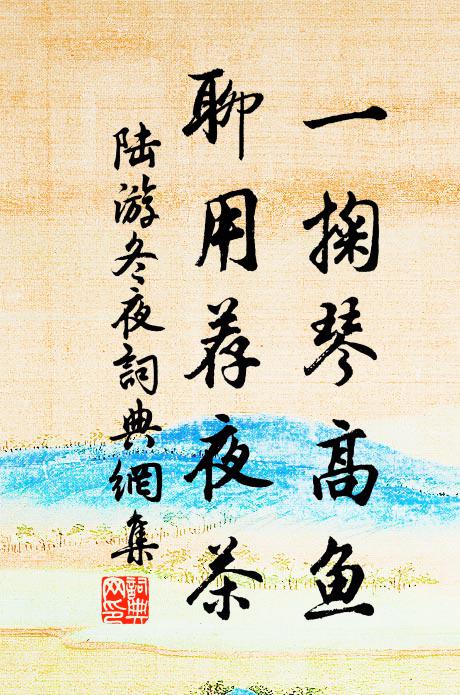 一掬琴高鱼
聊用荐夜茶
陆游冬夜詞典網集
詞典